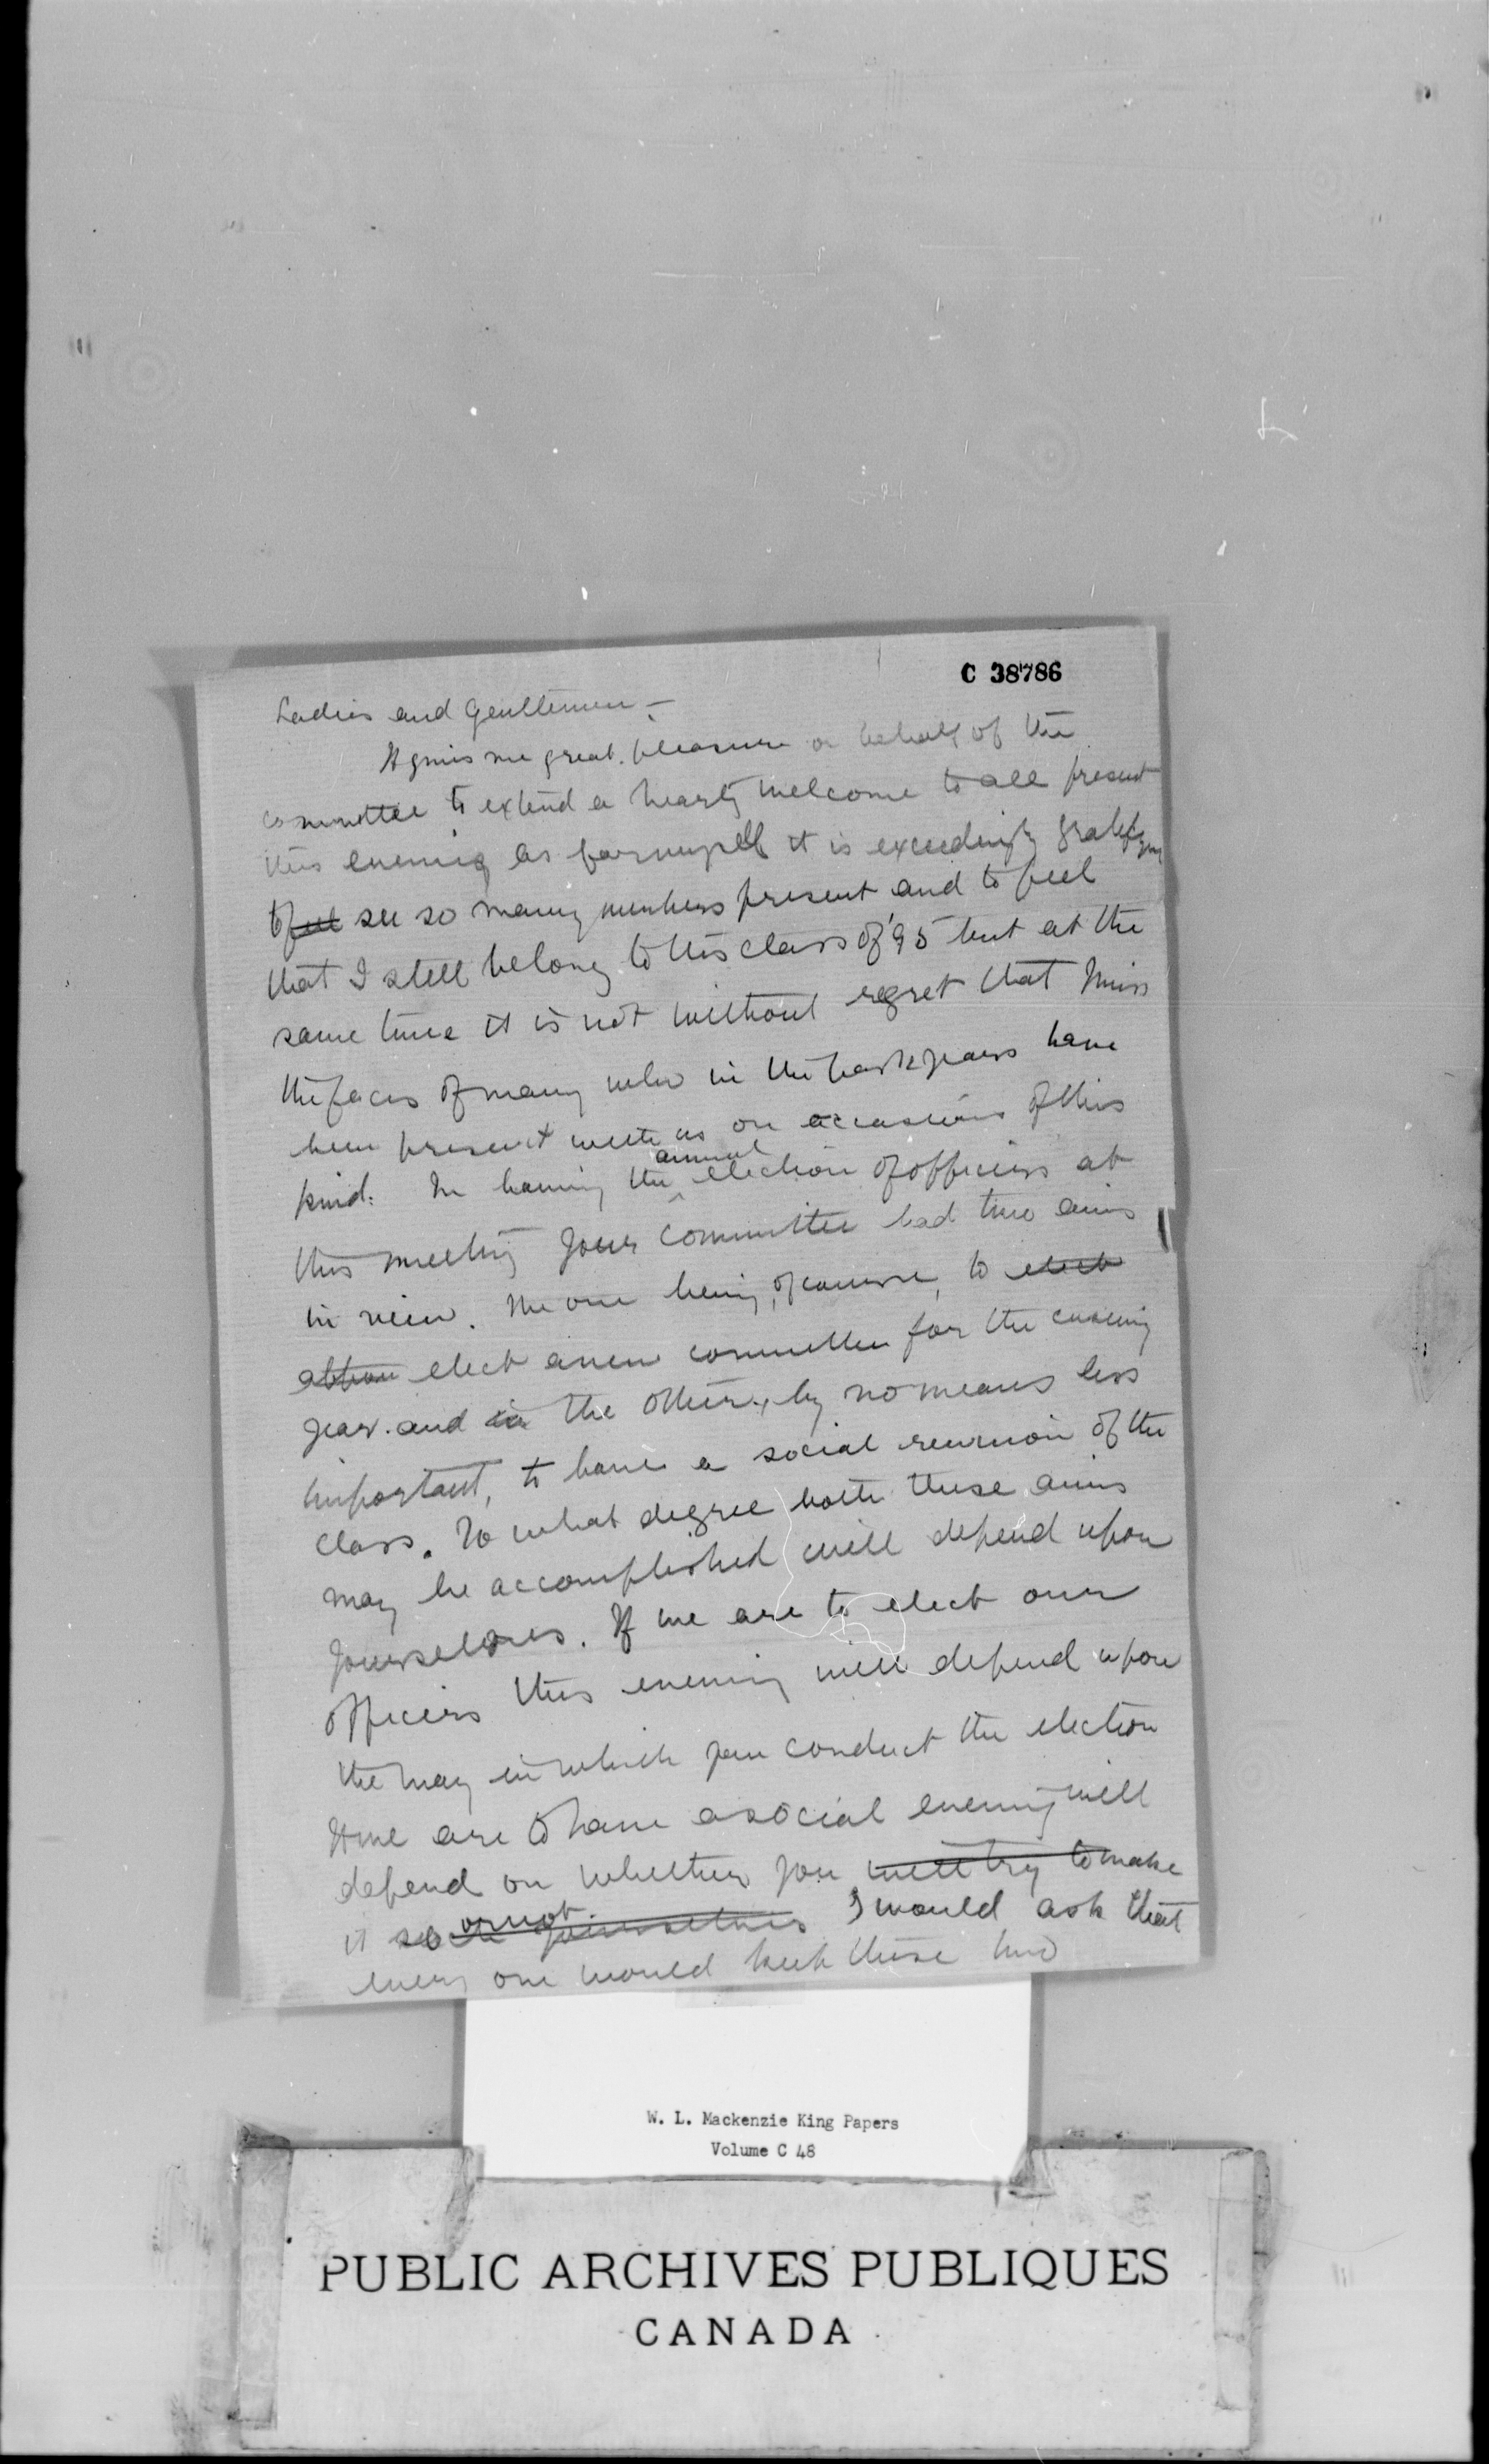 C 38786
Ladies and Gentlemen –
It gives me great pleasure on behalf of the
committee to extend a hearty welcome to all present
this evening as for myself it is exceedingly gratifying
to feel see so many members present and to feel
that I still belong to this class of '95 but at the
same time it is not without regret that I miss
the faces of many who in the past years have
been present with us on occasions of this
kind. In having the annual election of officers at
this meeting your committee had two aims
in view. The one being, of course, to elect
elect a new committee for the ensuing
year. and in the other, by no means less
important, to have a social reunion of the
class. To what degree both these aims
may be accomplished will depend upon
yourselves. If we are to elect our
officers this evening will depend upon
the way in which you conduct the election
If we are to have a social evening will
depend on whether you will try to make
it so or not yourselves I would ask that
every one would keep these two
W. L. Mackenzie King Papers
Volume C 48
PUBLIC ARCHIVES PUBLIQUES
CANADA